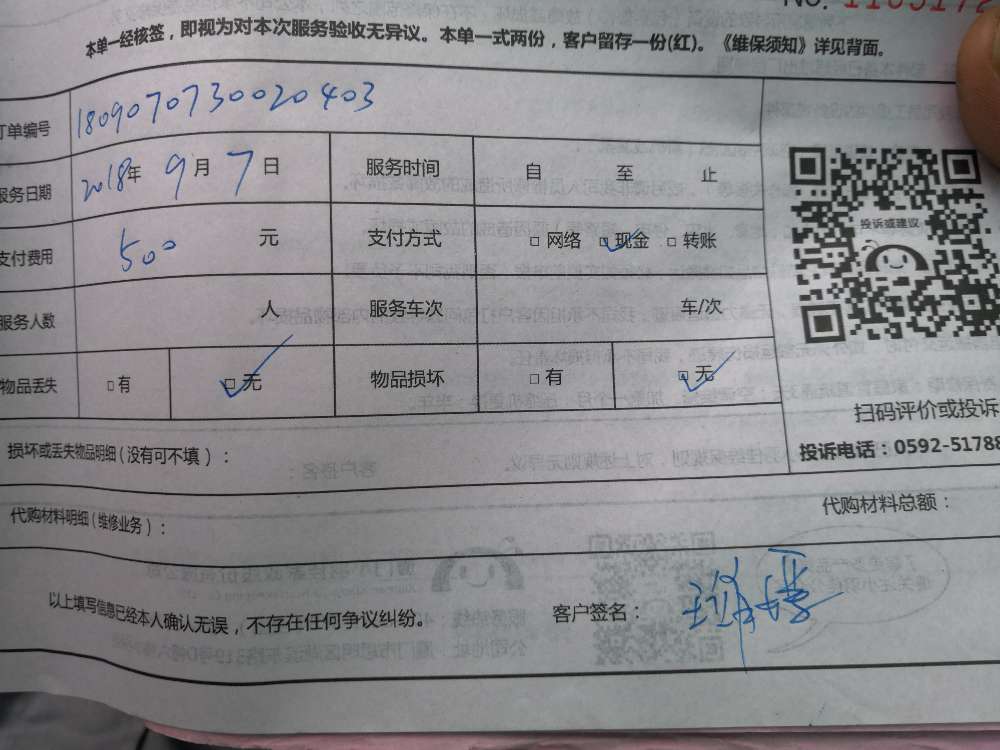 No.
本单一经核签，即视为对本次服务验收无异议。本单一式两份，客户留存一份(红)。《维保须知》详见背面。
订单编号 1809070730020403
服务日期 2018年 9月 7日 服务时间 自 至 止
支付费用 500 元 支付方式 □ 网络 □ 现金 □ 转账
服务人数 人 服务车次 车/次
物品丢失 □ 有 □ 无 物品损坏 □ 有 □ 无
投诉或建议
扫码评价或投诉
投诉电话：0592-51788
损坏或丢失物品明细（没有可不填）：
代购材料明细（维修业务）： 代购材料总额：
以上填写信息已经本人确认无误，不存在任何争议纠纷。 客户签名：